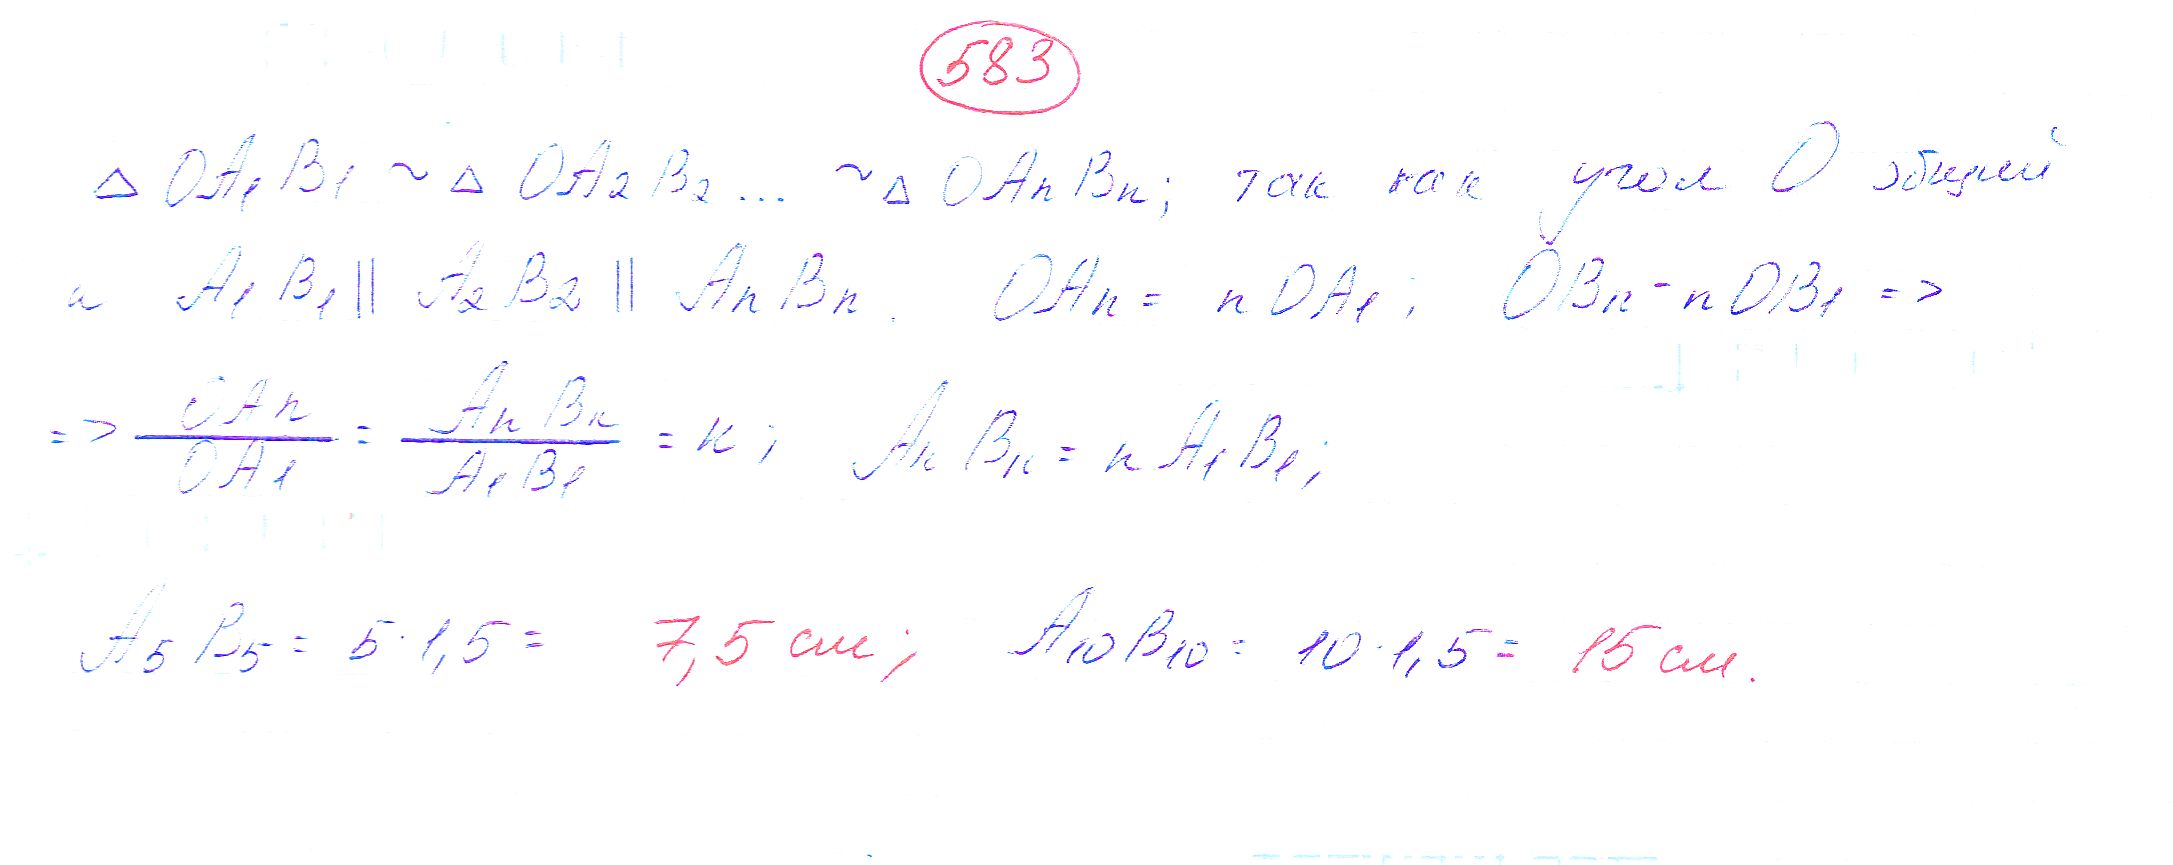 583
△ OA₁B₁ ~ △ OA₂B₂... ~ △ OAnBn; так как угол O общий
и A₁B₁ || A₂B₂ || AnBn. OAn = nOA₁; OBn = nOB₁ =>
=> OAn/OA₁ = AnBn/A₁B₁ = к; AnBn = nA₁B₁;
A₅B₅ = 5·1,5 = 7,5 см; A₁₀B₁₀ = 10·1,5 = 15 см.